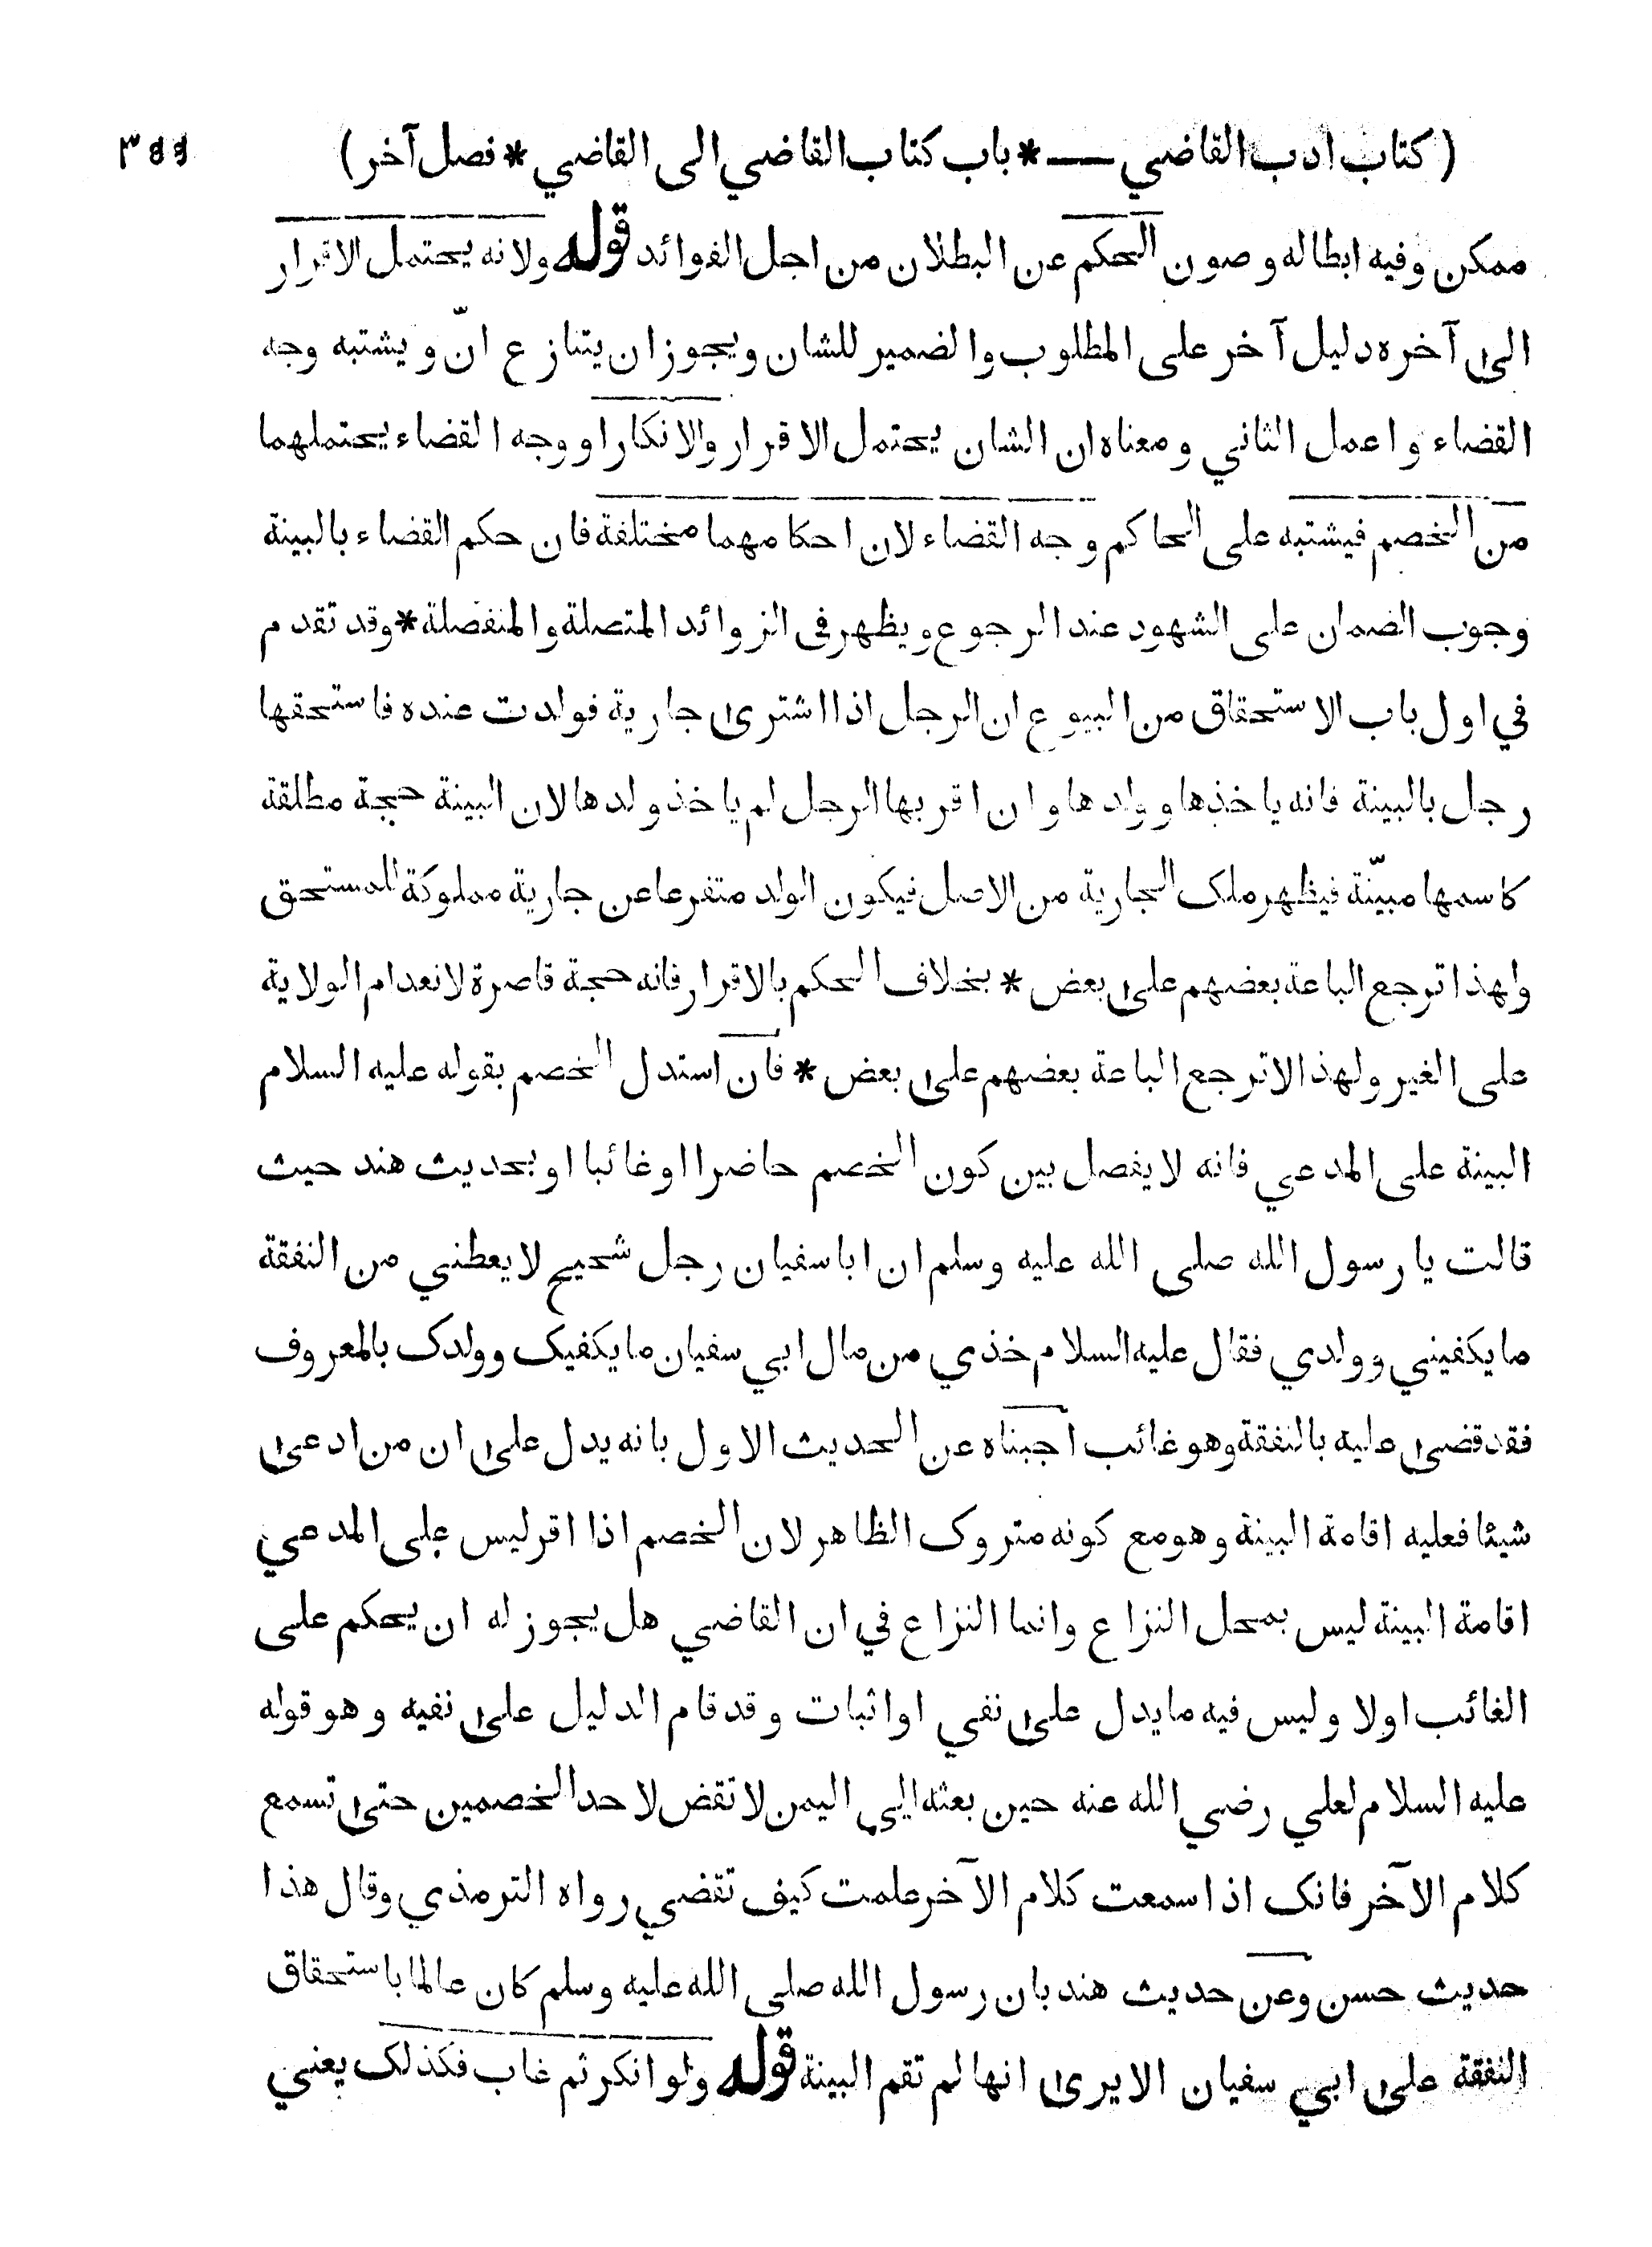 (كتاب ادب القاضي — * باب كتاب القاضي الى القاضي * فصل آخر)
ممكن وفيه ابطاله وصون الحكم عن البطلان من اجل الفوائد قوله ولانه يحتمل الاقرار
الى آخره دليل آخر على المطلوب والضمير للشان ويجوز ان يتنازع انّ ويشتبه وجه
القضاء واعمل الثاني ومعناه ان الشان يحتمل الاقرار والانكار او وجه القضاء يحتملهما
من الخصم فيشتبه على الحاكم وجه القضاء لان احكامهما مختلفة فان حكم القضاء بالبينة
وجوب الضمان على الشهود عند الرجوع ويظهر فى الزوائد المتصلة والمنفصلة * وقد تقدم
في اول باب الاستحقاق من البيوع ان الرجل اذا اشترى جارية فولدت عنده فاستحقها
رجل بالبينة فانه ياخذها وولدها وان اقر بها الرجل لم ياخذ ولدها لان البينة حجة مطلقة
كاسمها مبيّنة فيظهر ملك الجارية من الاصل فيكون الولد متفرعا عن جارية مملوكة للمستحق
ولهذا ترجع الباعة بعضهم على بعض * بخلاف الحكم بالاقرار فانه حجة قاصرة لانعدام الولاية
على الغير ولهذا لا ترجع الباعة بعضهم على بعض * فان استدل الخصم بقوله عليه السلام
البينة على المدعي فانه لا يفصل بين كون الخصم حاضرا او غائبا او بحديث هند حيث
قالت يا رسول الله صلى الله عليه وسلم ان ابا سفيان رجل شحيح لا يعطني من النفقة
ما يكفيني وولدي فقال عليه السلام خذي من مال ابي سفيان ما يكفيك وولدك بالمعروف
فقد قضى عليه بالنفقة وهو غائب اجبناه عن الحديث الاول بانه يدل على ان من ادعى
شيئا فعليه اقامة البينة وهو مع كونه متروك الظاهر لان الخصم اذا اقر ليس على المدعي
اقامة البينة ليس بمحل النزاع وانما النزاع في ان القاضي هل يجوز له ان يحكم على
الغائب اولا وليس فيه ما يدل على نفي او اثبات وقد قام الدليل على نفيه وهو قوله
عليه السلام لعلي رضي الله عنه حين بعثه الى اليمن لا تقض لاحد الخصمين حتى تسمع
كلام الآخر فانك اذا سمعت كلام الآخر علمت كيف تقضي رواه الترمذي وقال هذا
حديث حسن وعن حديث هند بان رسول الله صلى الله عليه وسلم كان عالما باستحقاق
النفقة على ابي سفيان الا يرى انها لم تقم البينة قوله ولو انكر ثم غاب فكذلك يعني